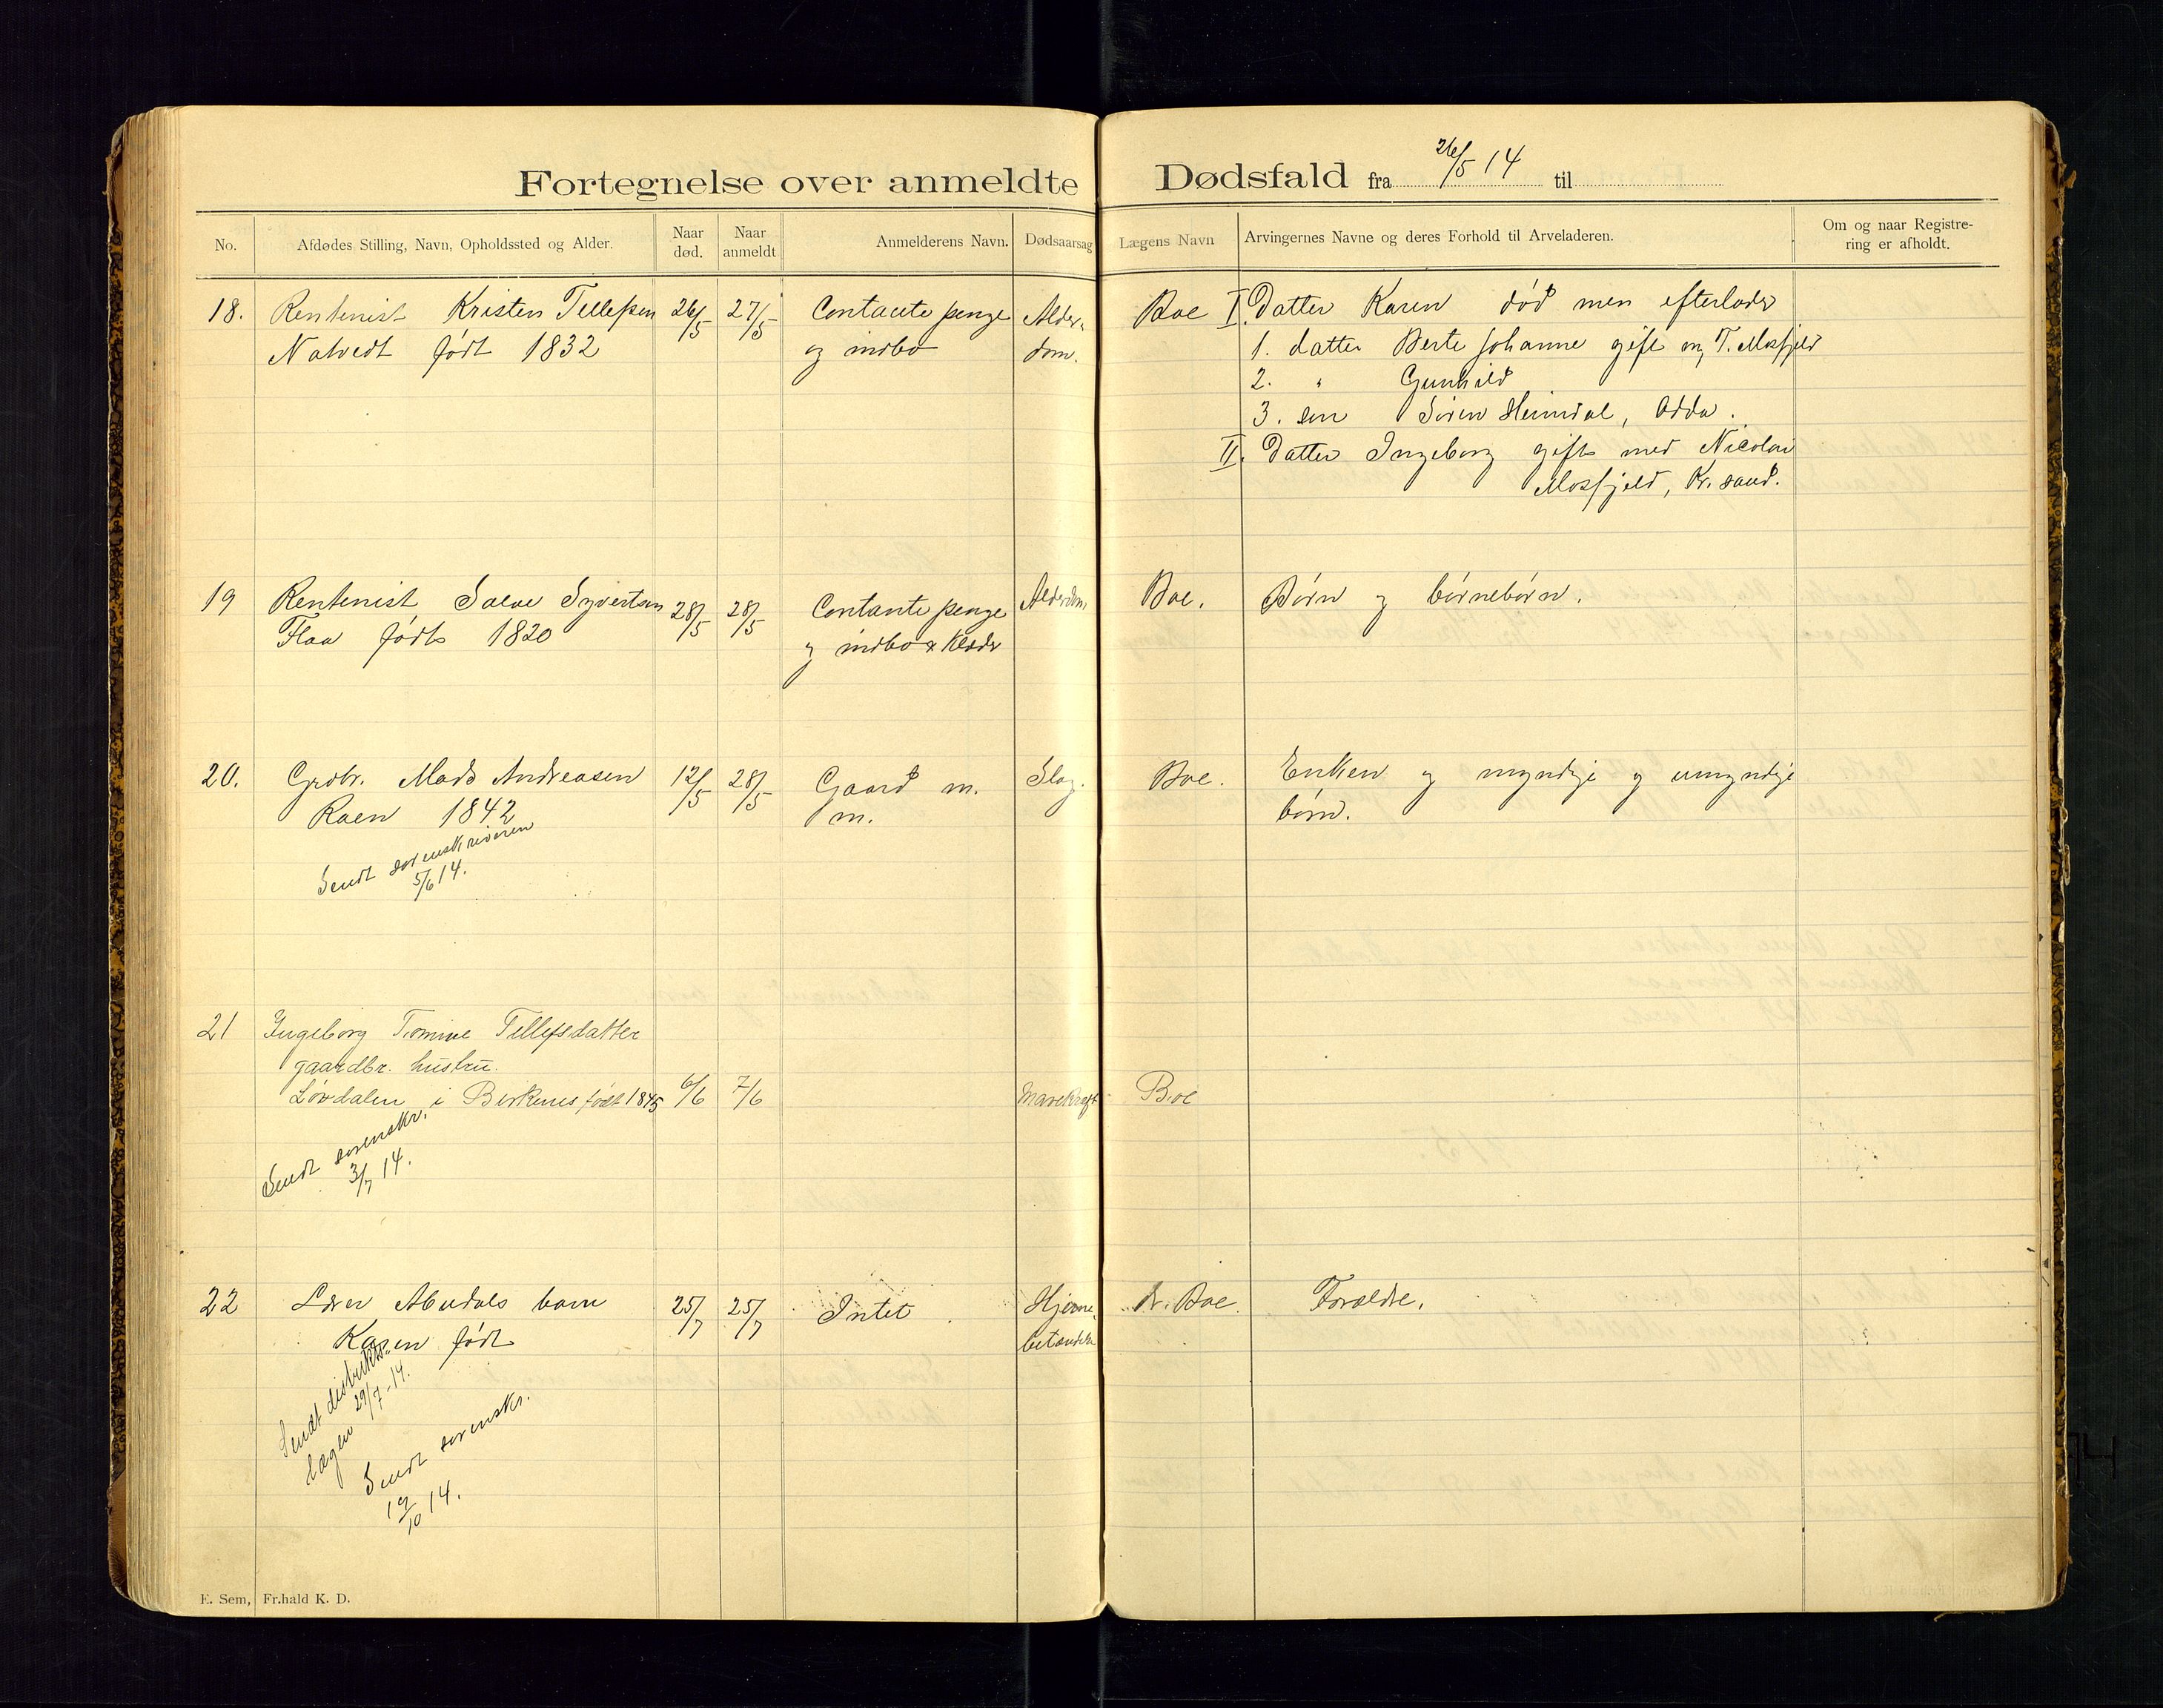 Fortegnelse over anmeldte Dødsfald fra 26/5 14 til
No. Afdødes Stilling, Navn, Opholdssted og Alder. Naar død. Naar anmeldt Anmelderens Navn. Dødsaarsag Lægens Navn Arvingernes Navne og deres Forhold til Arveladeren. Om og naar Registre-
ring er afholdt.
18. Rentenist Kristen Tellefsen 26/5 27/5 Contante penge Alder- Boe I. Datter Karen død men efterlader
Natvedt født 1832 og indbo dom. 1. datter Berte Johanne gift m, T. Mosfjeld
2. " Gunhild
3. søn Søren Heimdal, Odda.
II. Datter Ingeborg gift med Nicolai
Mosfjeld, Kr.sand.
19 Rentenist Salve Syvertsen 28/5 28/5 Contante penge Alderdom Boe. Børn og børnebørn.
Flaa født 1820 og indbo & klæder
20. Grdbr. Mads Andreasen 12/5 28/5 Gaard m. Slag. Boe. Enken og myndige og umyndige
Roen 1842 m. børn.
Sendt sorenskriveren
5/6 14.
21 Ingeborg Tomine Tellefsdatter
gaardbr. hustru.
Løvdalen i Birkenes født 1845 6/6 7/6 Mavekræft Boe
Sendt sorenskr.
3/7 14.
22 Lærer Abudals barn 25/7 25/7 Intet Hjerne- dr. Boe. Forældre.
Karen født betændelse
Sendt distrikts-
lægen 29/7-14.
Sendt sorenskr.
19/10 14.
E. Sem, Fr.hald K. D.